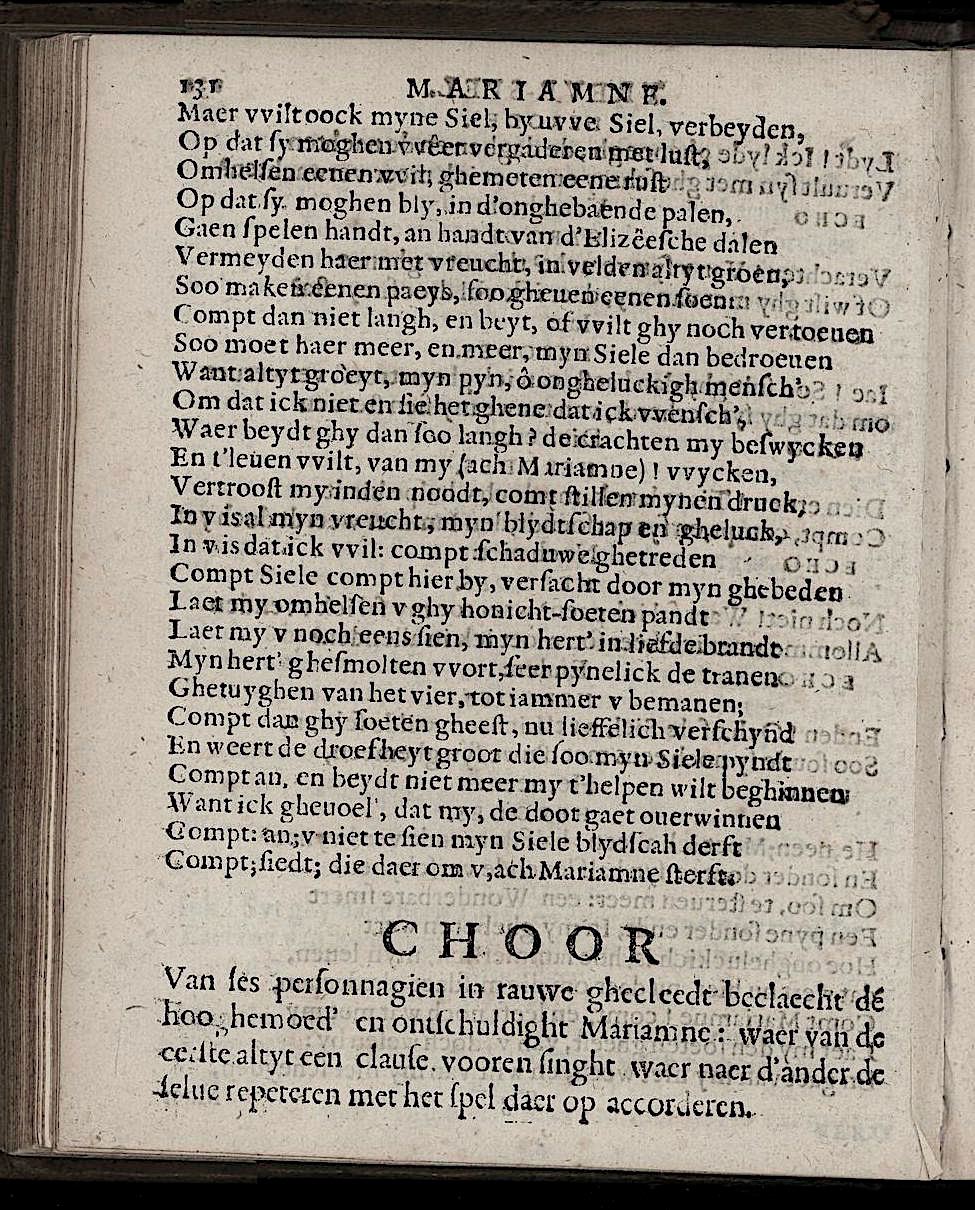 131 MARIAMNE.
Maer vvilt oock myne Siel, by uvve Siel, verbeyden,
Op dat ſy moghen vvêer vergaderen met luſt,
Omhelſen eenen wil, ghemeten eene ruſt
Op dat ſy moghen bly, in d'onghebaende palen,
Gaen ſpelen handt, an handt van d'Elizêeſche dalen
Vermeyden haer met vreucht, in velden altyt groen,
Soo maken eenen paeys, ſoo gheuen eenen ſoen
Compt dan niet langh, en beyt, of vvilt ghy noch vertoeuen
Soo moet haer meer, en meer, myn Siele dan bedroeuen
Want altyt groeyt, myn pyn, ô ongheluckigh menſch'
Om dat ick niet en ſie het ghene dat ick vvenſch',
Waer beydt ghy dan ſoo langh? de crachten my beſwycken
En t'leuen vvilt, van my (ach Mariamne)! vvycken,
Vertrooſt my inden noodt, comt ſtillen mynen druck,
In v is al myn vreucht, myn blydtſchap en gheluck,
In v is dat ick vvil: compt ſchaduwe ghetreden
Compt Siele compt hier by, verſacht door myn ghebeden
Laet my omhelſen v ghy honicht-ſoeten pandt
Laet my v noch eens ſien, myn hert' in liefde brandt
Myn hert' gheſmolten vvort, ſeer pynelick de tranen
Ghetuyghen van het vier, tot iammer v bemanen;
Compt dan ghy ſoeten gheeſt, nu lieffelich verſchynd
En weert de droefheyt groot die ſoo myn Siele pyndt
Compt an, en beydt niet meer my t'helpen wilt beghinnen
Want ick gheuoel', dat my, de doot gaet ouerwinnen
Compt: an; v niet te ſien myn Siele blydſcah derft
Compt; ſiedt; die daer om v, ach Mariamne ſterft.
CHOOR
Van ſes perſonnagien in rauwe ghecleedt beclaecht dé
hooghemoed' en ontſchuldight Mariamne: waer van de
eerſte altyt een clauſe vooren ſinght waer naer d'ander de
ſelue repeteren met het ſpel daer op accorderen.